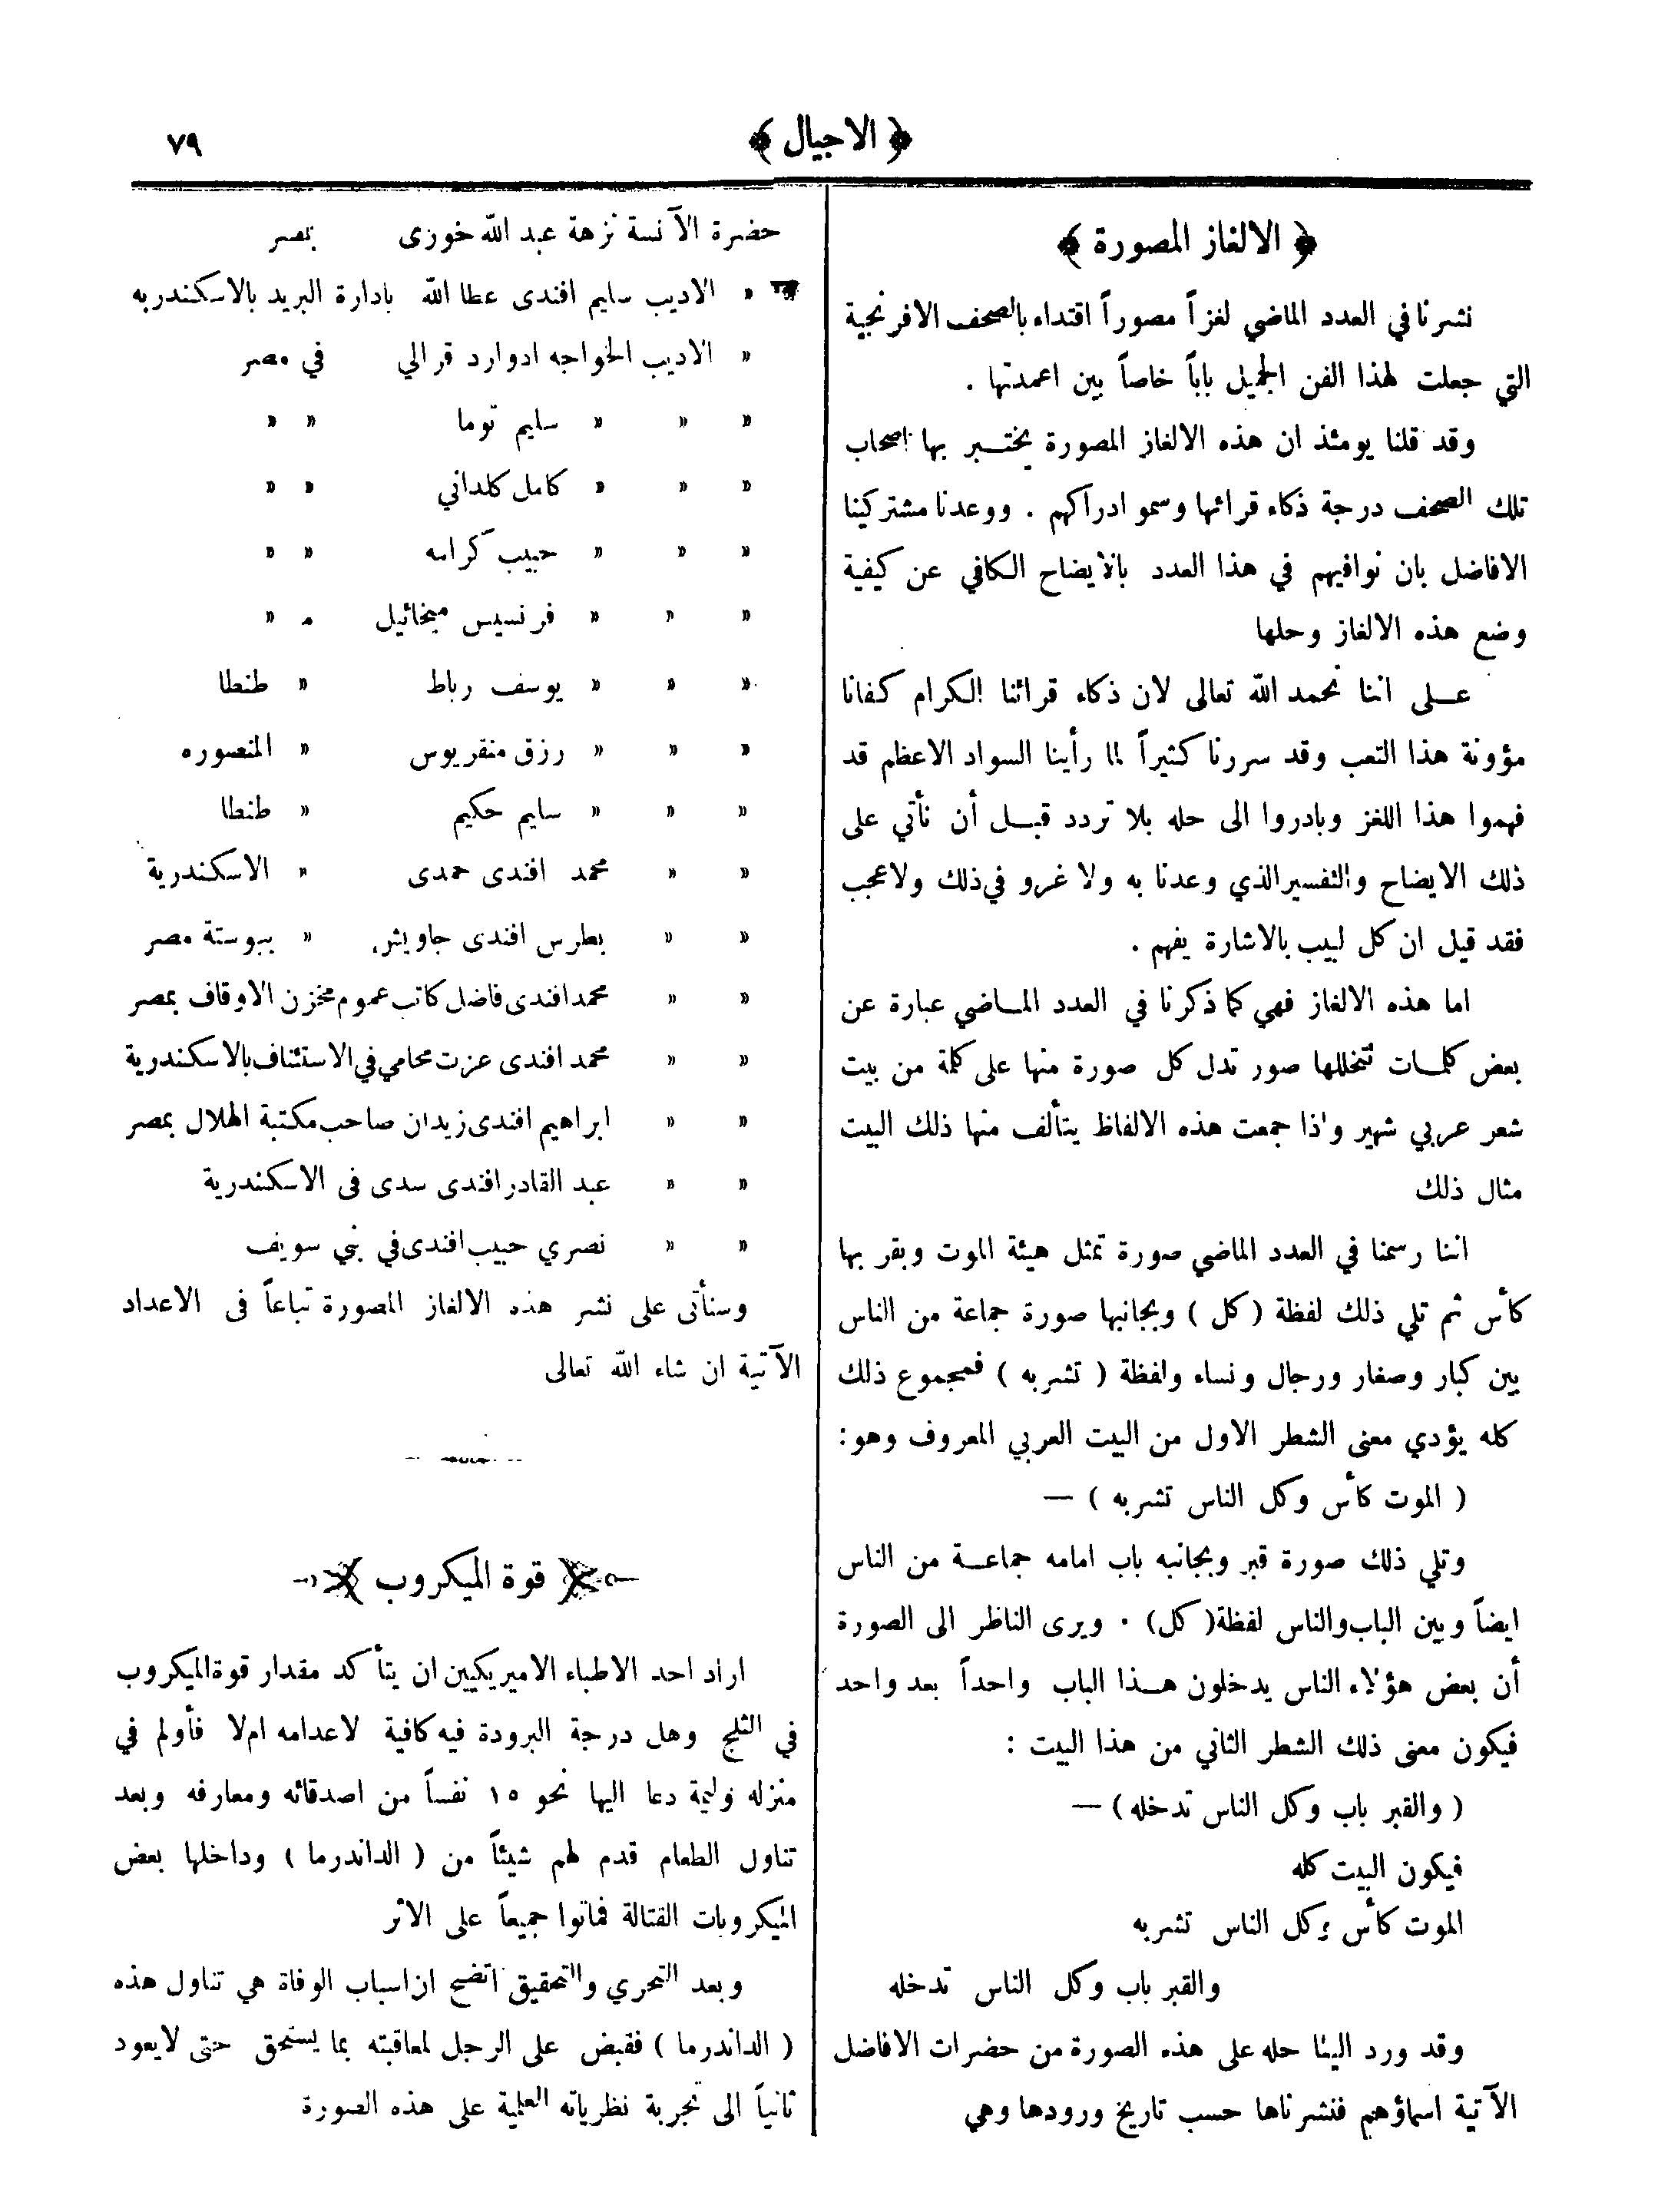 ﴿ الاجيال ﴾
٧٩
﴿ الالغاز المصورة ﴾
نشرنا في العدد الماضي لغزاً مصوراً اقتداء بالصحف الافرنجية
التي جعلت لهذا الفن الجميل باباً خاصاً بين اعمدتها .
وقد قلنا يومئذ ان هذه الالغاز المصورة يختــبر بها اصحاب
تلك الصحف درجة ذكاء قرائها وسمو ادراكهم . ووعدنا مشتركينا
الافاضل بان نوافيهم في هذا العدد بالايضاح الكافي عن كيفية
وضع هذه الالغاز وحلها
عــلى اننا نحمد الله تعالى لان ذكاء قرائنا الكرام كفانا
مؤونة هذا التعب وقد سررنا كثيراً لما رأينا السواد الاعظم قد
فهموا هذا اللغز وبادروا الى حله بلا تردد قبــل أن نأتي على
ذلك الايضاح والتفسير الذي وعدنا به ولا غرو في ذلك ولا عجب
فقد قيل ان كل لبيب بالاشارة يفهم .
اما هذه الالغاز فهي كما ذكرنا في العدد المــاضي عبارة عن
بعض كلمــات تتخللها صور تدل كل صورة منها على كلمة من بيت
شعر عربي شهير واذا جمعت هذه الالفاظ يتألف منها ذلك البيت
مثال ذلك
اننا رسمنا في العدد الماضي صورة تمثل هيئة الموت وبقر بها
كأس ثم تلي ذلك لفظة ( كل ) وبجانبها صورة جماعة من الناس
بين كبار وصغار ورجال ونساء ولفظة ( تشربه ) فمجموع ذلك
كله يؤدي معنى الشطر الاول من البيت العربي المعروف وهو :
( الموت كأس وكل الناس تشربه ) —
وتلي ذلك صورة قبر وبجانبه باب امامه جماعــة من الناس
ايضاً وبين الباب والناس لفظة ( كل ) . ويرى الناظر الى الصورة
أن بعض هؤلاء الناس يدخلون هــذا الباب واحداً بعد واحد
فيكون معنى ذلك الشطر الثاني من هذا البيت :
( والقبر باب وكل الناس تدخله ) —
فيكون البيت كله
الموت كأس وكل الناس تشربه
والقبر باب وكل الناس تدخله
وقد ورد الينا حله على هذه الصورة من حضرات الافاضل
الآتية اسماؤهم فنشرناها حسب تاريخ ورودها وهي
حضرة الآنسة نزهة عبد الله خوزى بمصر
« الاديب سليم افندى عطا الله بادارة البريد بالاسكندريه
« الاديب الخواجه ادوارد قرالي في مصر
« « « سليم توما « «
« « « كامل كلداني « «
« « « حبيب كرامه « «
« « « فرنسيس ميخائيل « «
« « « يوسف رباط « طنطا
« « « رزق منقريوس « المنصوره
« « « سليم حكيم « طنطا
« « محمد افندى حمدى « الاسكندرية
« « بطرس افندى جاويش « ببوستة مصر
« « محمد افندى فاضل كاتب عموم مخزن الاوقاف بمصر
« « محمد افندى عزت محامي في الاستئناف بالاسكندرية
« « ابراهيم افندى زيدان صاحب مكتبة الهلال بمصر
« « عبد القادر افندى سدى فى الاسكندرية
« « نصري حبيب افندى في بني سويف
وسنأتى على نشر هذه الالغاز المصورة تباعاً فى الاعداد
الآتية ان شاء الله تعالى
قوة الميكروب
اراد احد الاطباء الاميريكيين ان يتأكد مقدار قوة الميكروب
في الثلج وهل درجة البرودة فيه كافية لاعدامه ام لا فأولم في
منزله وليمة دعا اليها نحو ١٥ نفساً من اصدقائه ومعارفه وبعد
تناول الطعام قدم لهم شيئاً من ( الداندرما ) وداخلها بعض
الميكروبات القتالة فماتوا جميعاً على الاثر
وبعد التحري والتحقيق اتضح ان اسباب الوفاة هي تناول هذه
( الداندرما ) فقبض على الرجل لمعاقبته بما يستحق حتى لا يعود
ثانياً الى تجربة نظرياته العلمية على هذه الصورة